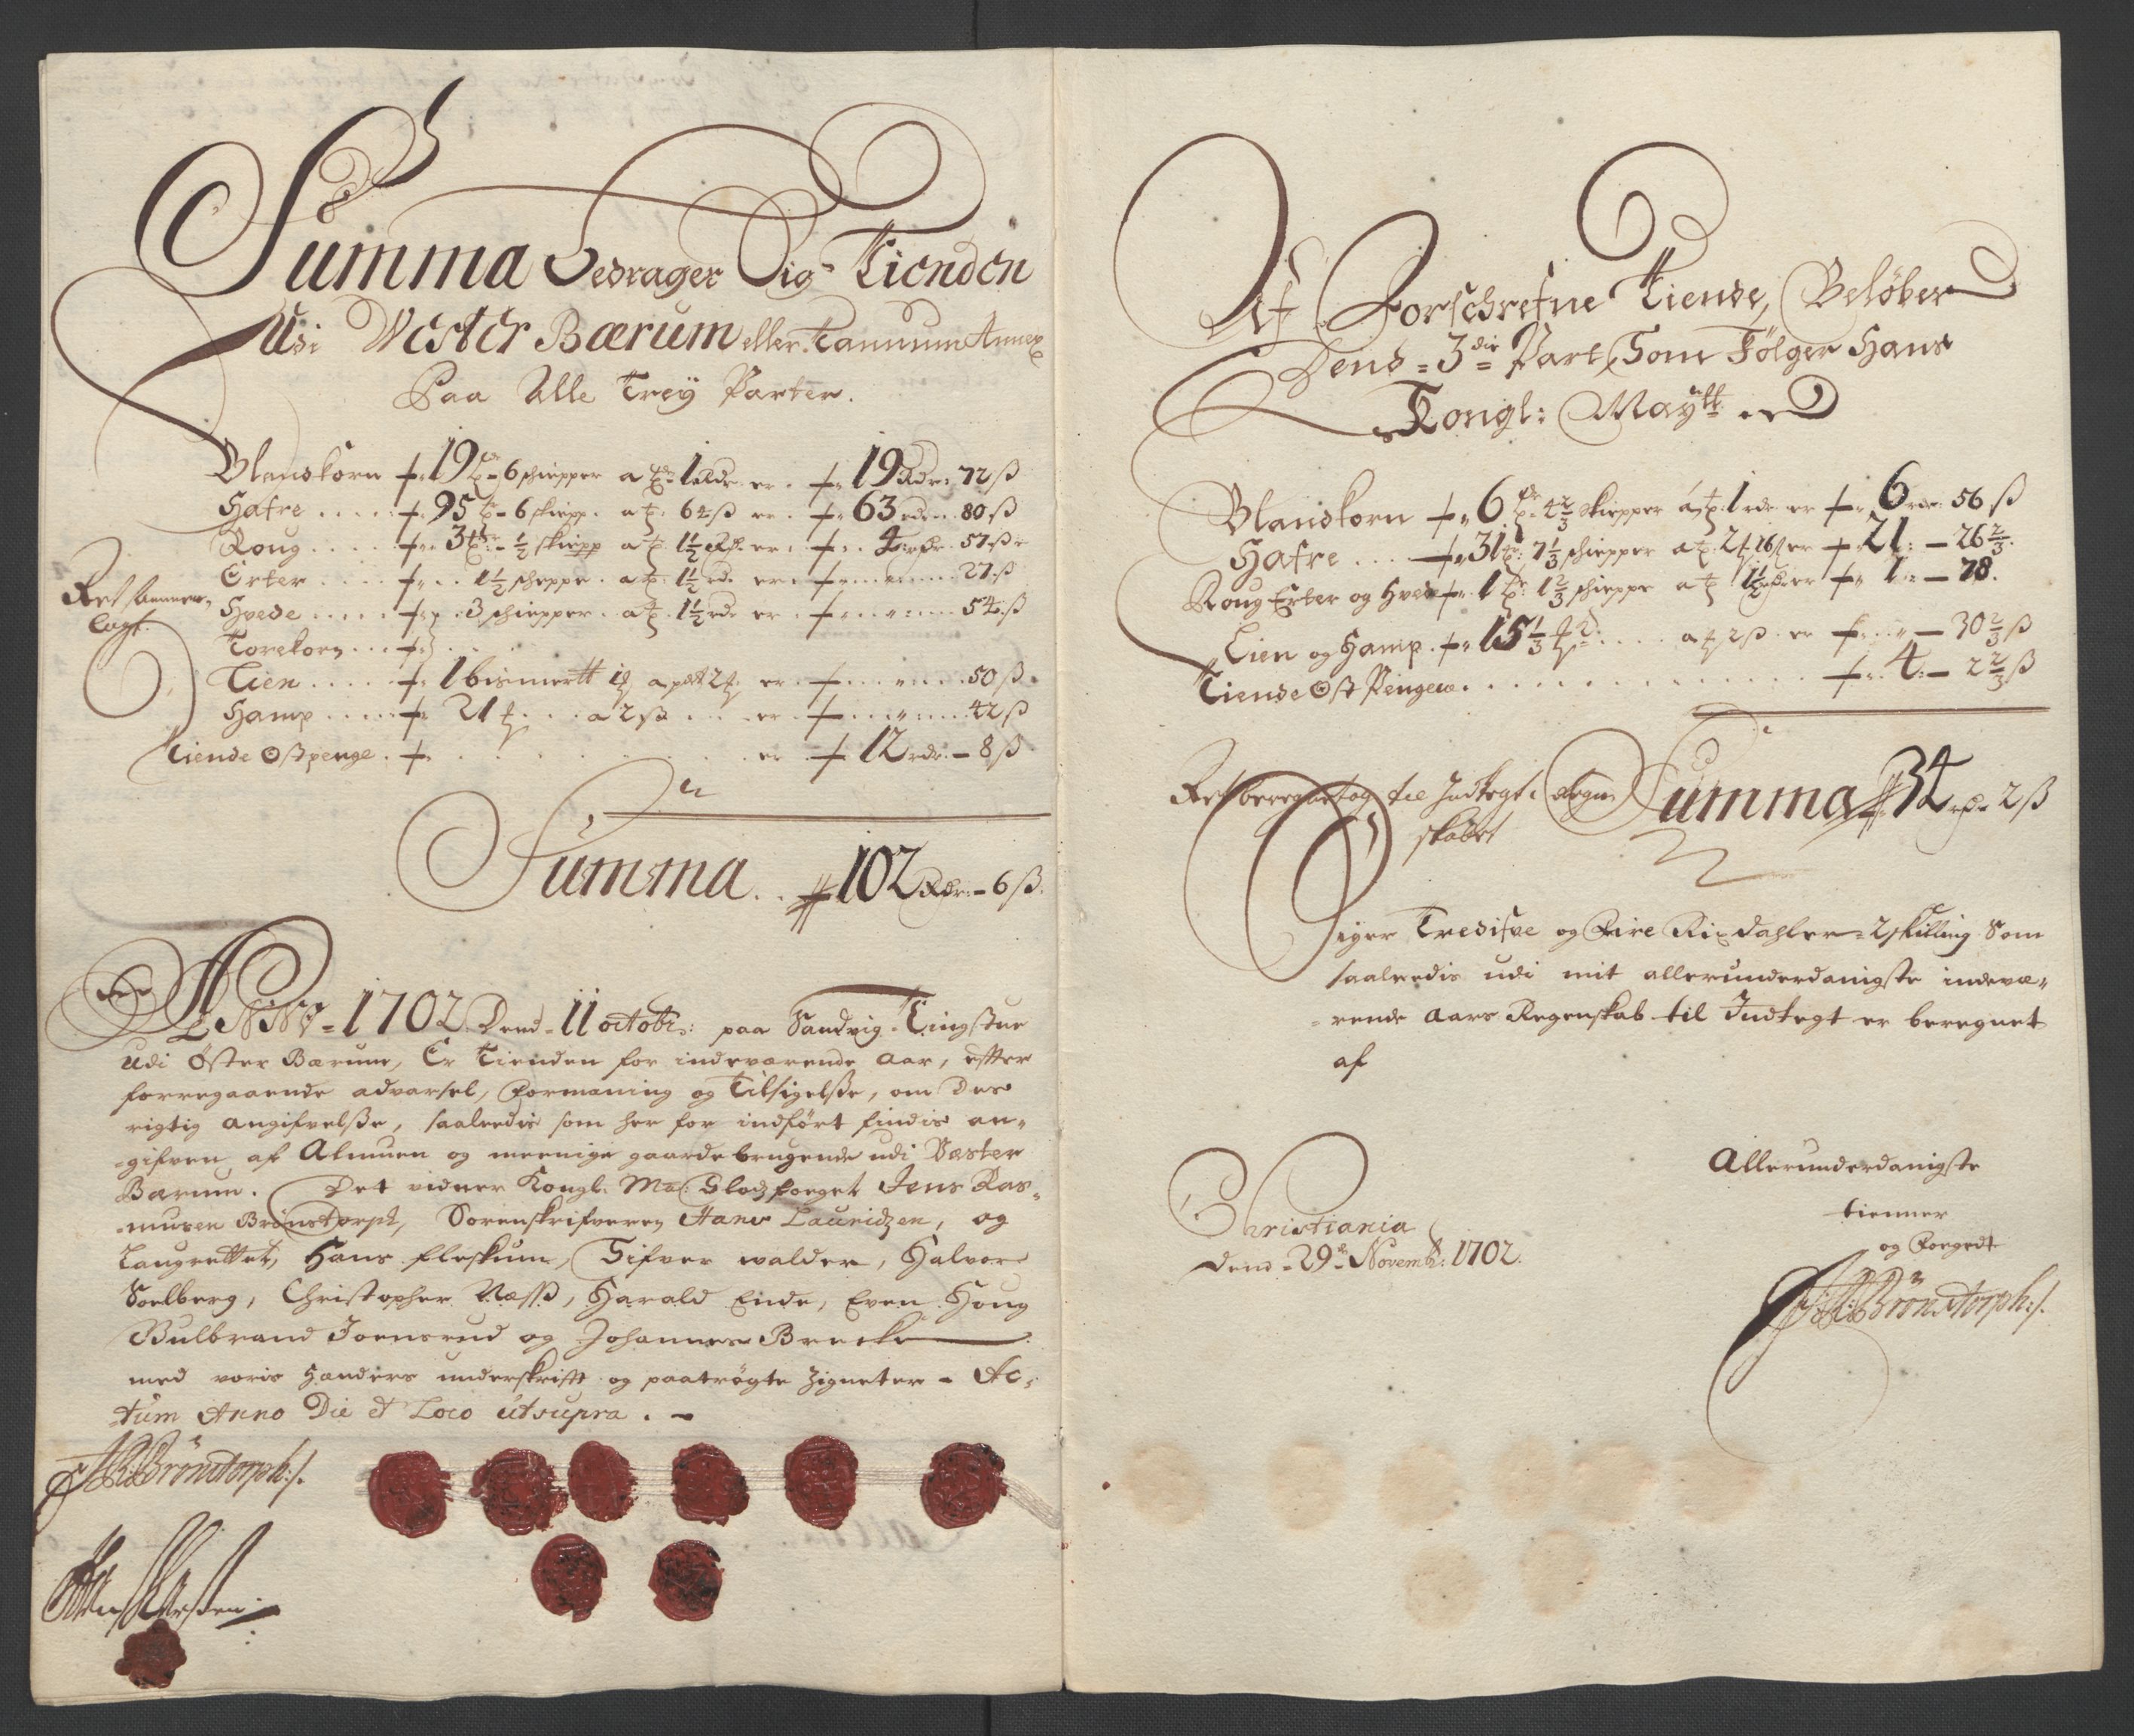 Summa Bedrager Sig Tienden
Udi Wester Bærum eller Tanum Annex
Paa Alle Trey Parter.
Blandkorn 19 tdr 6 schiepper a td 1 rdr er 19 Rdr 72 ß
Hafre 95 t 6 skiepp. a t. 64 ß er 63 rdr 80 ß
Roug 3 tdr ½ skiepp a t. 1½ Rdr er 4 rdr. 57 ß
Erter 1½ scheppe. a t. 1½ rdr er 27 ß
Hvede 3 schiepper. a t. 1½ rdr er 54 ß
Torekorn
Lien 1 bismertt er 50 ß
Hamp 21 a 2 ß er 42 ß
Tiende Ost penge er 12 rdr 8 ß
Ret sammen
lagt.
Summa 102 Rdr 6 ß.
ANNO 1702. Dend 11 octobr: paa Sandvig Tingstue
udi Øster Bærum, Er Tienden for indeværende Aar, efter
forregaaende advarsel, formaning og Tilsigelße, om Des
rigtig angifvelße, saaledis som her for indført findis an-
-gifven af Almuen og meenige gaardebrugende udi Vester
Bærum. Det vidner Kongl. May: foeget Jens Ras-
-musen Brønstorph, Sorenskrifveren Hans Lauridzen, og
Laugrettet, Hans fleskum, Sifver walder, Halvor
Soelberg, Christopher Næsß, Harald Ende, Even Houg
Gulbrand Joensrud og Johannes Brecke
med voris Hænders underskrift og paatrøgte Zigneter - Ac-
tum Anno Die et Loco ut supra. -
JRBrönstorph:/.
Af Forschrefne Tiende, Beløber
Dend 3die Part, Som Følger Hans
Kongl: Maytt
Blandkorn 6 tdr 4⅔ skiepper a t. 1 rdr er 6 rdr 56 ß
Hafre 31 t: 7⅓ schiepper a t. er 21 - 26⅔.
Roug Erter og Hvede 1 t: 1⅔ schieppe a t 1½ rdr er 1 - 78.
Lien og Hamp. 15⅓ a 2 ß er 30⅔ ß
Tiende Ost Penge 4 - 2⅔ ß
Ret beregnet og til Indtegt i Regn
skabet
Summa 34 rdr 2 ß
Siger Tredisve og Fire Rixdahler 2 skilling Som
saaledis udi mit allerunderdanigste indevæ-
-rende Aars Regenskab til Indtegt er beregnet
af
Christiania
Dend 29de Novemb: 1702.
Allerunderdanigste
tienner
og Foegedt
JRBrönstorph:/.